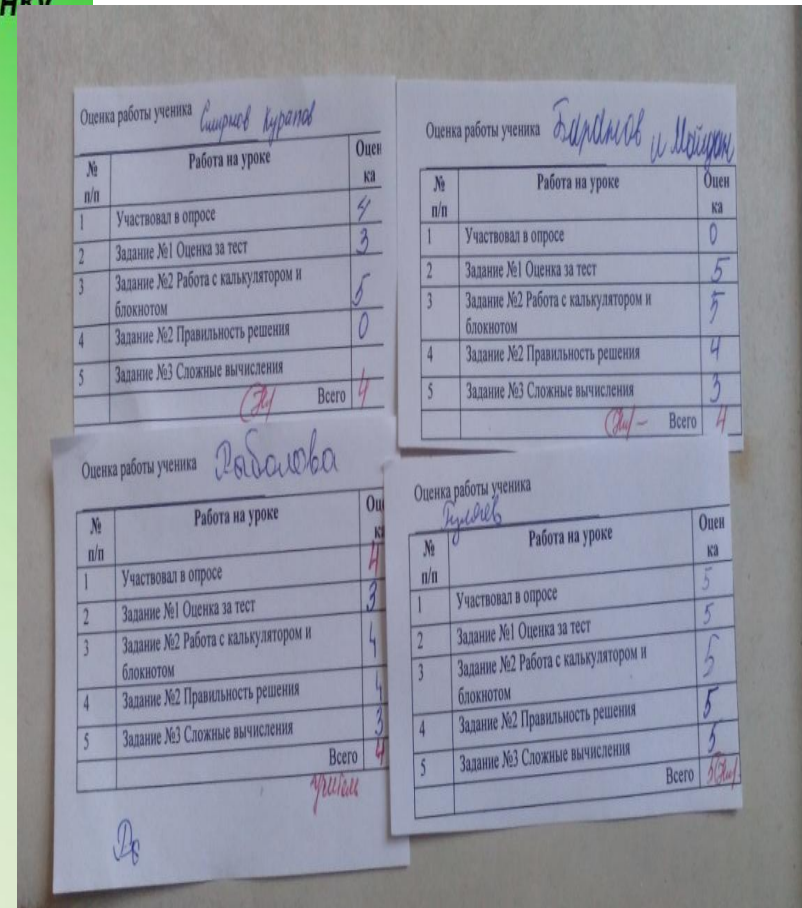 Оценка работы ученика Смирнов Курапов
№ п/п Работа на уроке Оцен ка
1 Участвовал в опросе 4
2 Задание №1 Оценка за тест 3
3 Задание №2 Работа с калькулятором и
блокнотом 5
4 Задание №2 Правильность решения 0
5 Задание №3 Сложные вычисления
Всего 4
Оценка работы ученика Баранов и
№ п/п Работа на уроке Оцен ка
1 Участвовал в опросе 0
2 Задание №1 Оценка за тест 5
3 Задание №2 Работа с калькулятором и
блокнотом 5
4 Задание №2 Правильность решения 4
5 Задание №3 Сложные вычисления 3
Всего 4
Оценка работы ученика Рыболова
№ п/п Работа на уроке
1 Участвовал в опросе 4
2 Задание №1 Оценка за тест 3
3 Задание №2 Работа с калькулятором и
блокнотом 4
4 Задание №2 Правильность решения 4
5 Задание №3 Сложные вычисления 3
Всего 4
учитель
Оценка работы ученика
Гуляев
№ п/п Работа на уроке Оцен ка
1 Участвовал в опросе 5
2 Задание №1 Оценка за тест 5
3 Задание №2 Работа с калькулятором и
блокнотом 5
4 Задание №2 Правильность решения 5
5 Задание №3 Сложные вычисления 5
Всего 5